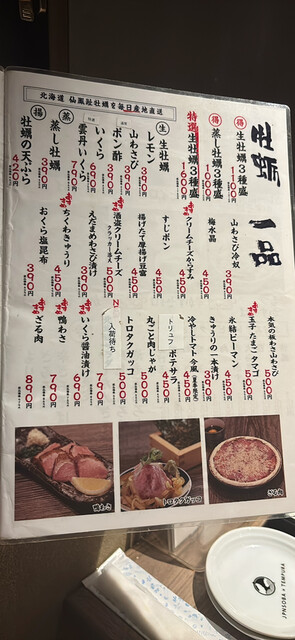 北海道 仙鳳趾牡蠣を毎日産地直送
牡蠣
一品
得 生牡蠣3種盛 1100円
得 蒸し牡蠣3種盛 1100円
特選生牡蠣3種盛 1600円
生 生牡蠣
レモン 390円
山わさび 390円
ポン酢 390円
いくら 690円
雲丹いくら 790円
蒸 蒸し牡蠣 390円
揚 牡蠣の天ぷら 420円
山わさび冷奴 390円
梅水晶 450円
クリームチーズからすみ 450円
すじポン 450円
揚げたて厚揚げ豆富 450円
酒盗クリームチーズ クラッカー添え 500円
えだまめわさび漬け 390円
ちくわきゅうり 450円
おくら塩昆布 390円
本気の板わさ山わさび 500円
玉子 たまごタマゴ 500円
氷結ピーマン 450円
きゅうりの一本漬け 390円
冷やしトマト 今風 450円
トリュフ ポテサラ 450円
丸ごと肉じゃが 500円
トロタクガッコ 500円
入荷待ち 790円
いくら醤油漬け 690円
鴨わさ 790円
ざる肉 890円
鴨わさ
トロタクガッコ
ざる肉
JPNSOBA × TEMPURA